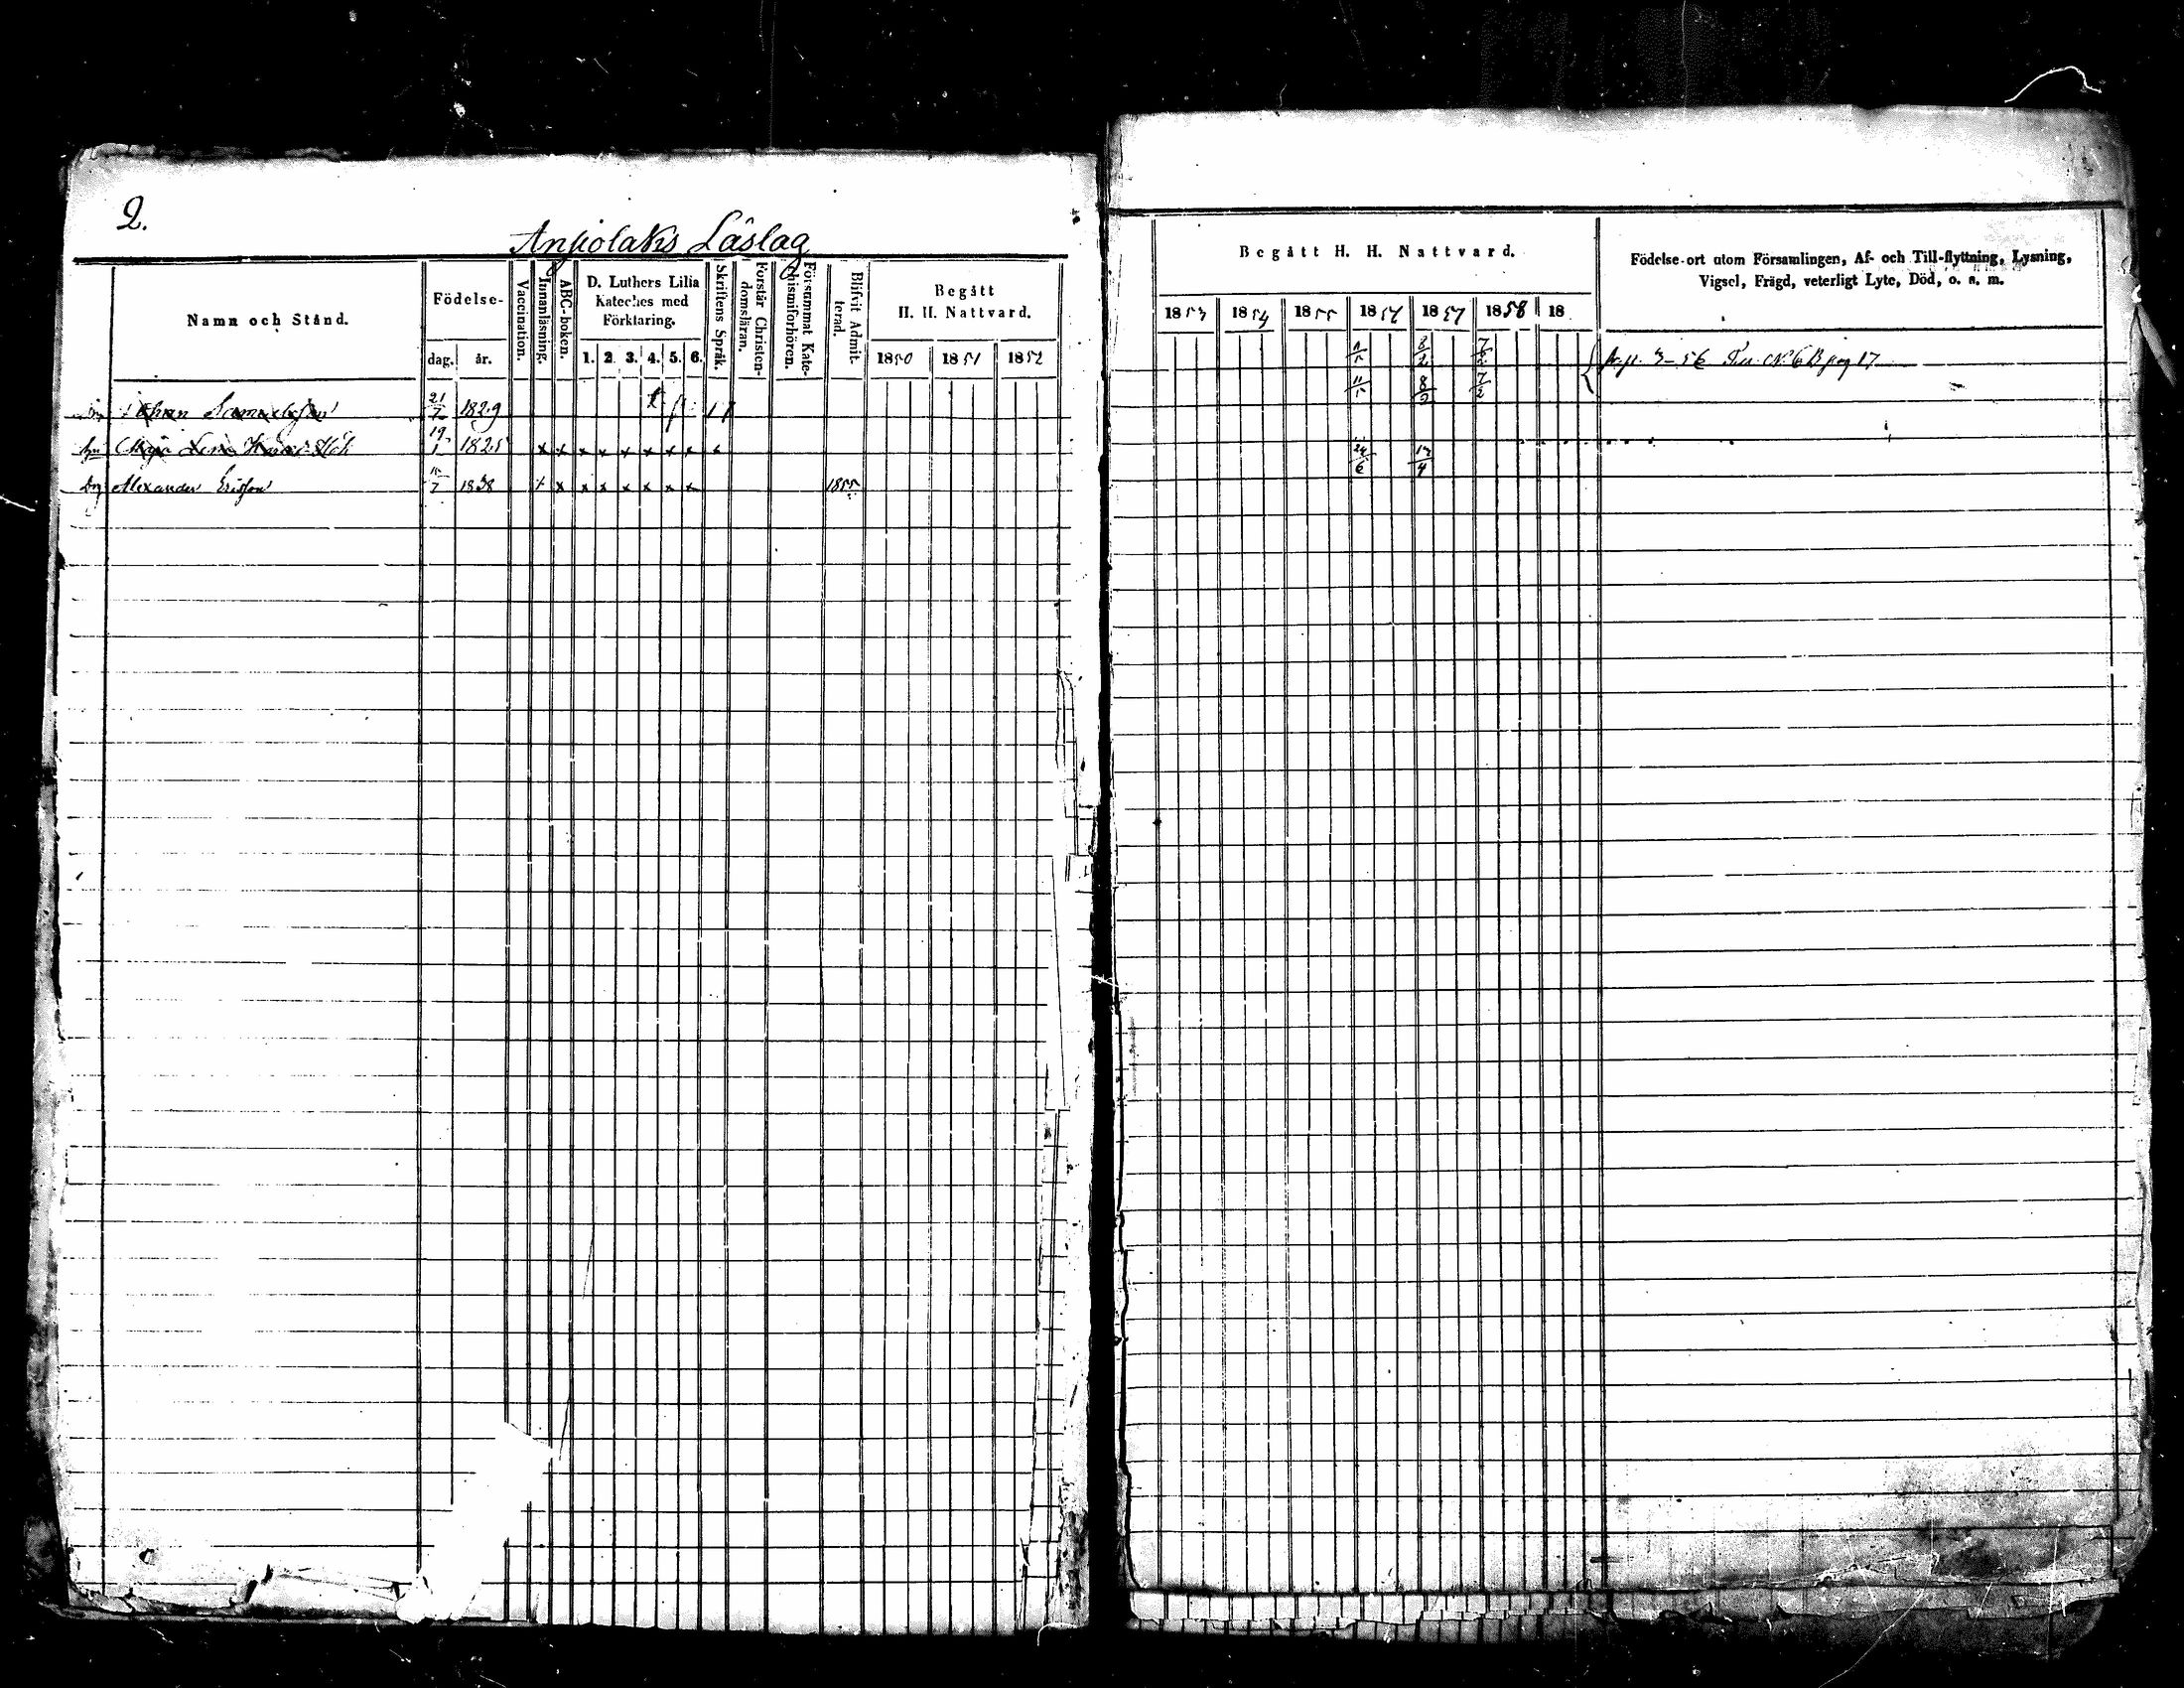 2.
Anjolaks Läslag
Namn och Stånd.
Födelse-
dag. år.
Vaccination.
Innanläsning.
ABC-boken.
D. Luthers Lilla
Kateches med
Förklaring.
1. 2. 3. 4. 5. 6.
Skriftens Språk.
Förstår Christen-
domsläran.
Försummat Kate-
chismiförhören.
Blifvit Admit-
terad.
Begått
H. H. Nattvard.
1850 1851 1852
Johan Samuelsson 21/7 1829
Maja Lena 19/1 1825 x x x x x x x x x
Drg Alexander Ericsson 1838 x x x x x x x x 1855
Begått H. H. Nattvard.
1853 1854 1855 1856 1857 1858 18
Födelse-ort utom Församlingen, Af- och Till-flyttning, Lysning,
Vigsel, Frägd, veterligt Lyte, Död, o. s. m.
8/2 7/2
3-56 No 6 B pag 17
11/5 8/2 7/2
24/6 13/4